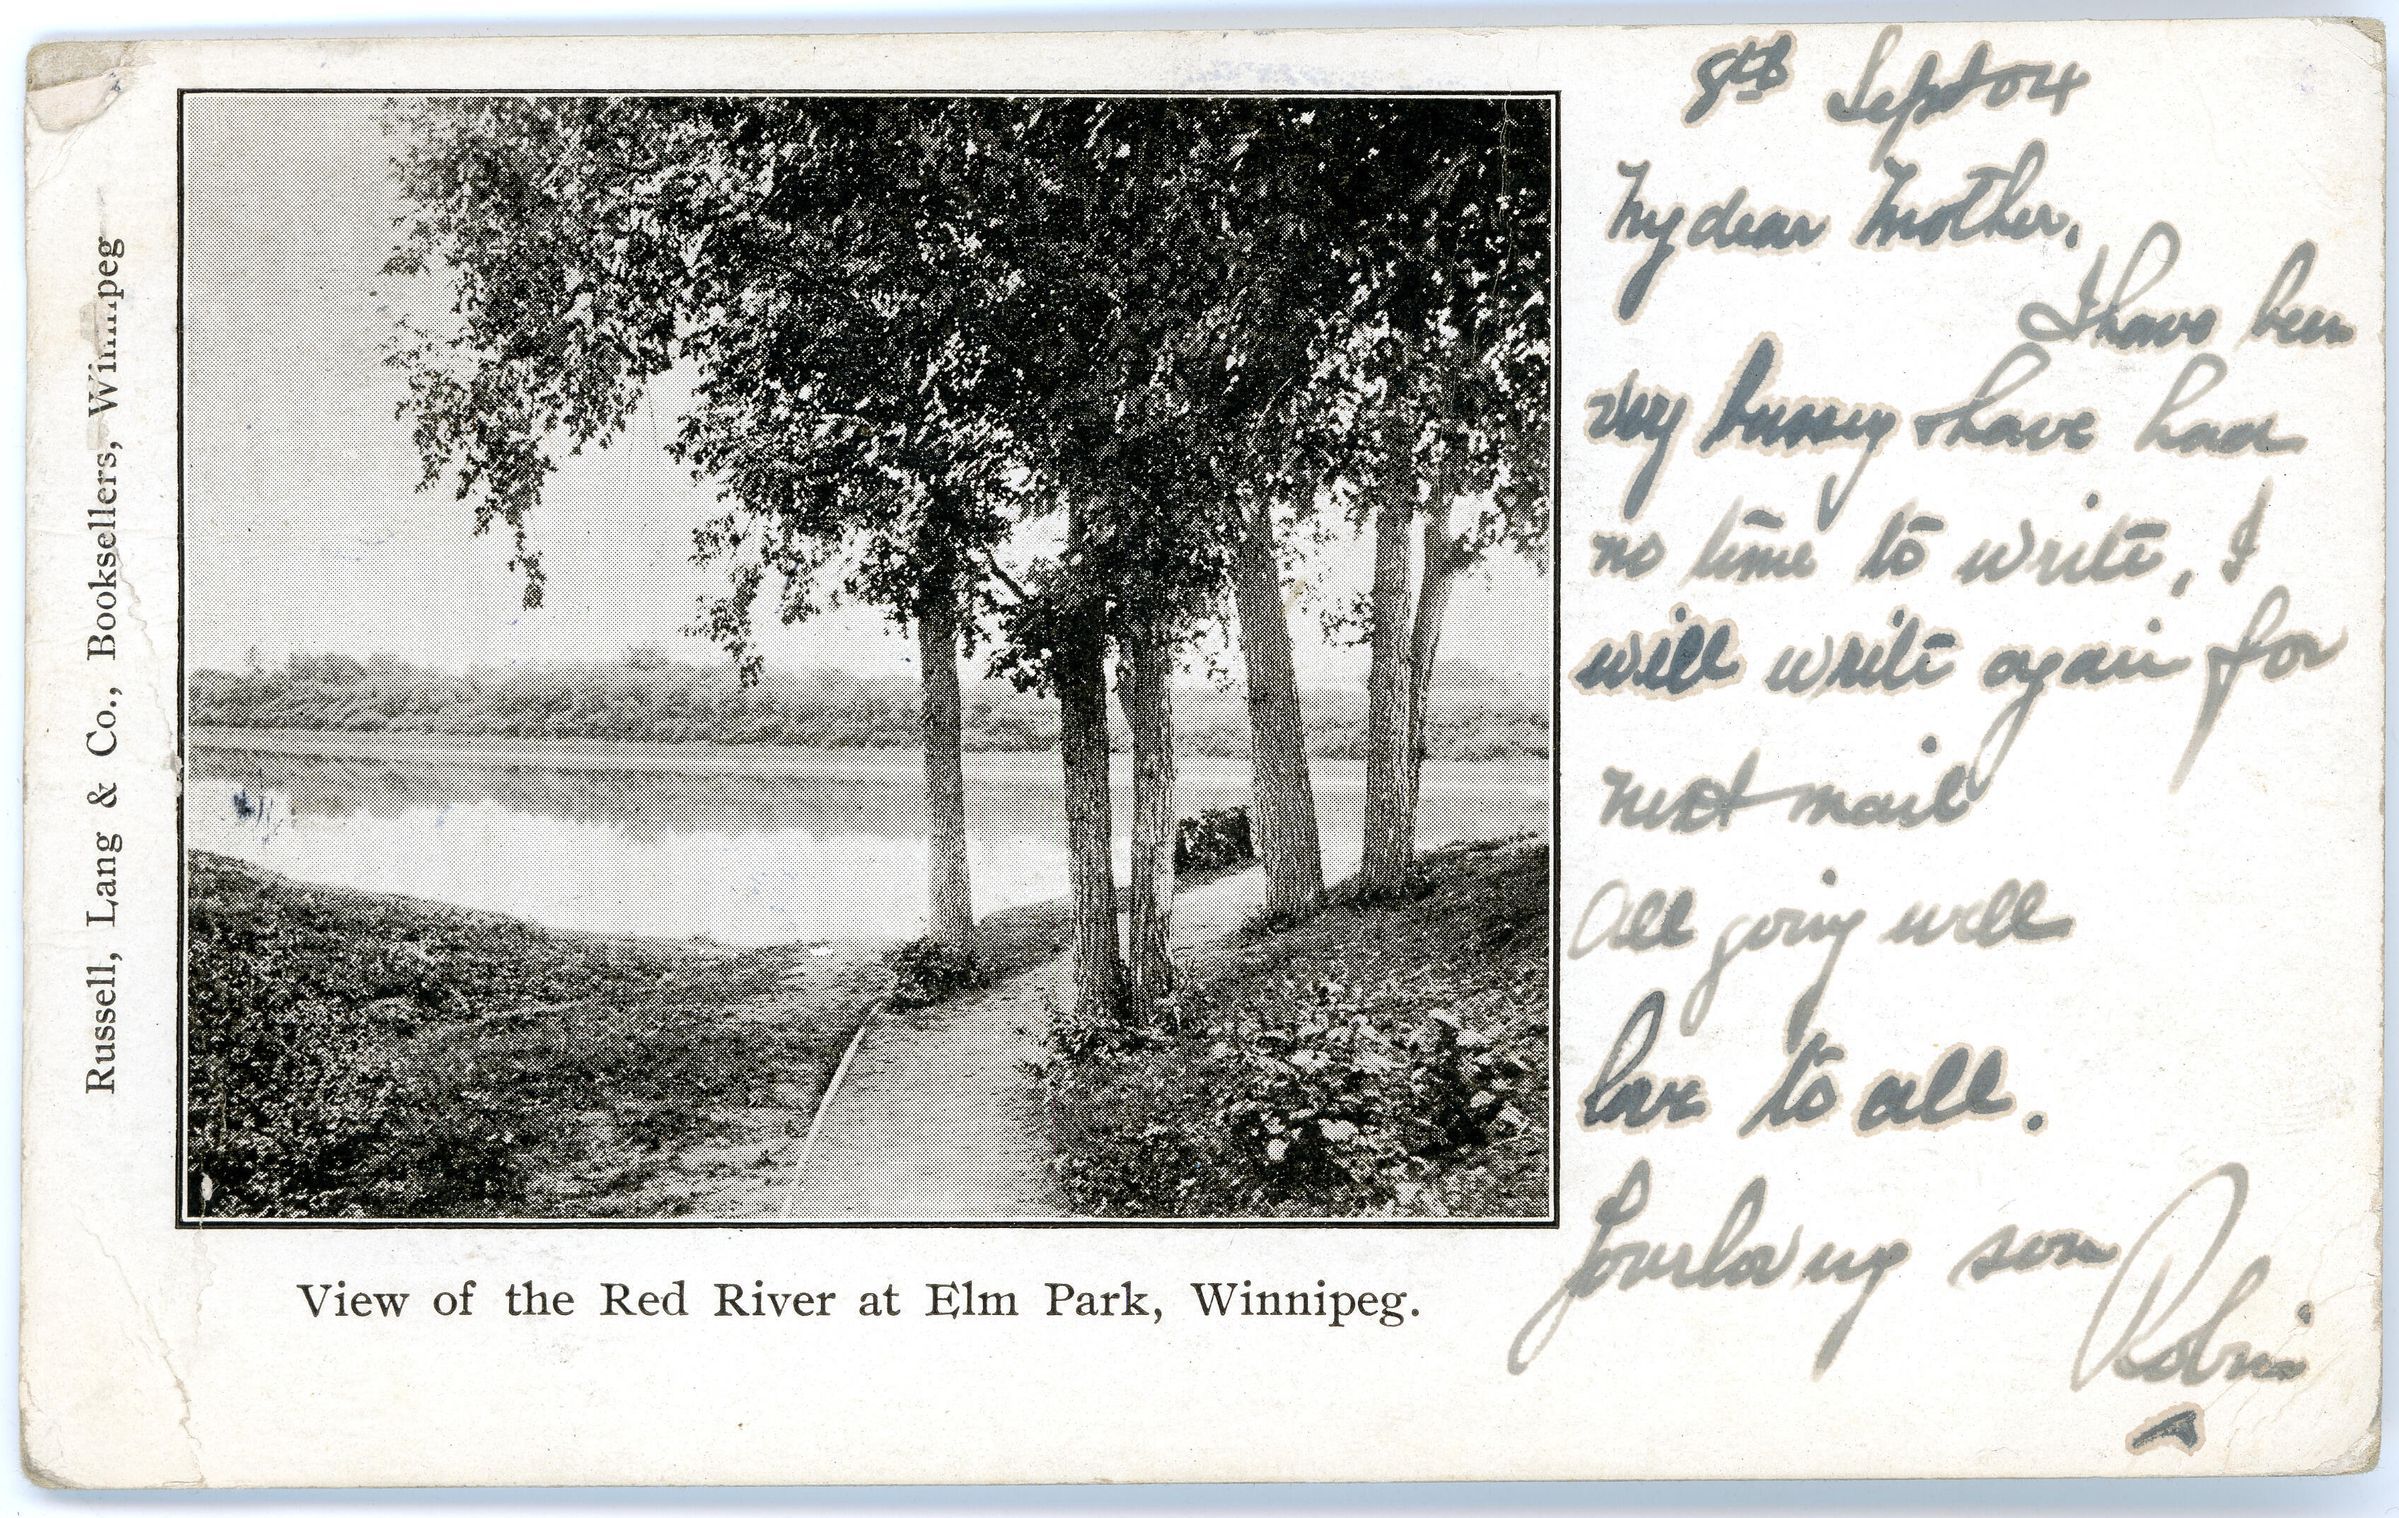 Russell, Lang & Co., Booksellers, Winnipeg
View of the Red River at Elm Park, Winnipeg.
8th Sept 04
My dear Mother,
I have been
very bussey & have had
no time to write, I
will write again for
next mail
All going well
love to all.
Your loving son
Robin